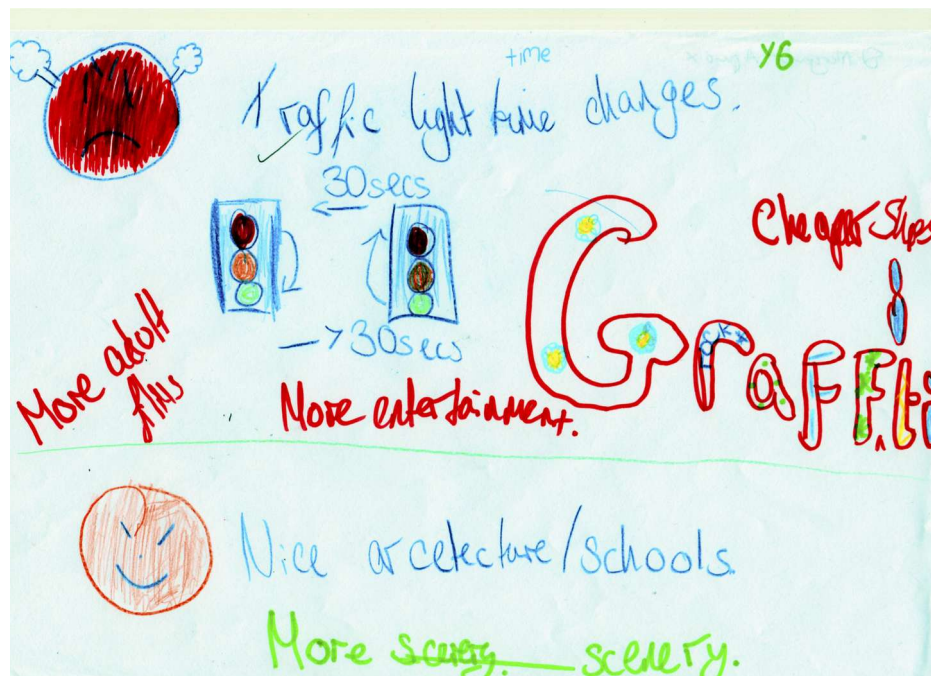 time
Y6
Traffic light time changes.
30secs
Cheaper Shops
→ 30secs
Graffiti
More adult
films
More entertainment.
Nice arcetecture/schools.
More scenery. scenery.